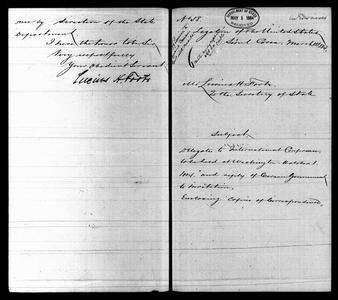 ment, by direction of the State
Department.
I have the honor to be Sir
Very respectfully
Your Obedient Servant
Lucius H. Foote
No 58
MAY 1 1884
Legation of the United States
Seoul Corea, March
Mr. Lucius H. Foote
To the Secretary of State
Subject
Delegates to International Congress
to be held at Washington October 1
and reply of Corean Government
to Invitation,
Enclosing Copies of Correspondence.